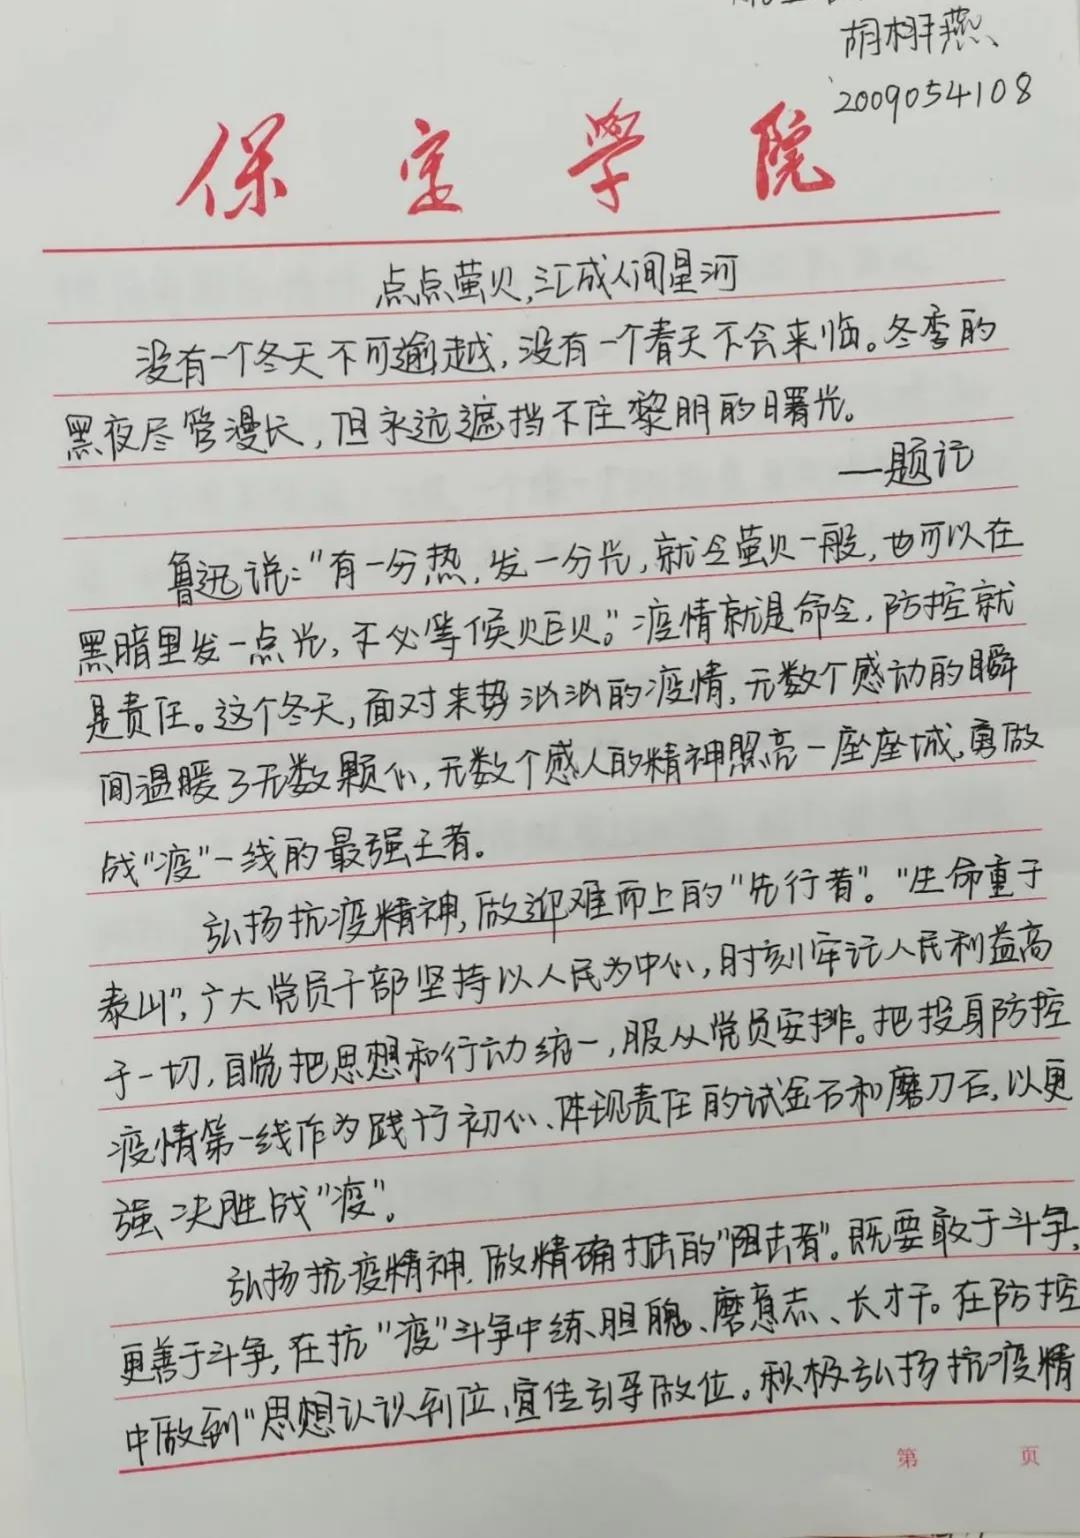 胡栩燕
2009054108
保定学院
点点萤火,汇成人间星河
没有一个冬天不可逾越,没有一个春天不会来临。冬季的
黑夜尽管漫长,但永远遮挡不住黎明的曙光。
——题记
鲁迅说:“有一分热,发一分光,就令萤火一般,也可以在
黑暗里发一点光,不必等候炬火。”疫情就是命令,防控就
是责任。这个冬天,面对来势汹汹的疫情,无数个感动的瞬
间温暖了无数颗心,无数个感人的精神照亮一座座城,勇做
战“疫”一线的最强王者。
弘扬抗疫精神,做迎难而上的“先行者”。“生命重于
泰山”,广大党员干部坚持以人民为中心,时刻牢记人民利益高
于一切,自觉把思想和行动统一,服从党员安排。把投身防控
疫情第一线作为践行初心、体现责任的试金石和磨刀石,以更
强决胜战“疫”。
弘扬抗疫精神,做精确打击的“阻击者”。既要敢于斗争,
更善于斗争,在抗“疫”斗争中练胆魄、磨意志、长才干。在防控
中做到“思想认识到位,宣传引导做位。积极弘扬抗疫精
第 页